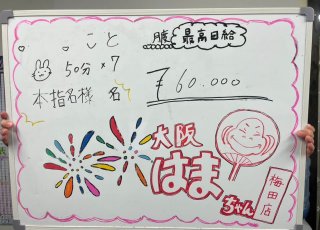 こと
最高日給
50分×7
本指名様 名
¥60.000
大阪
はま
ちゃん
梅田店